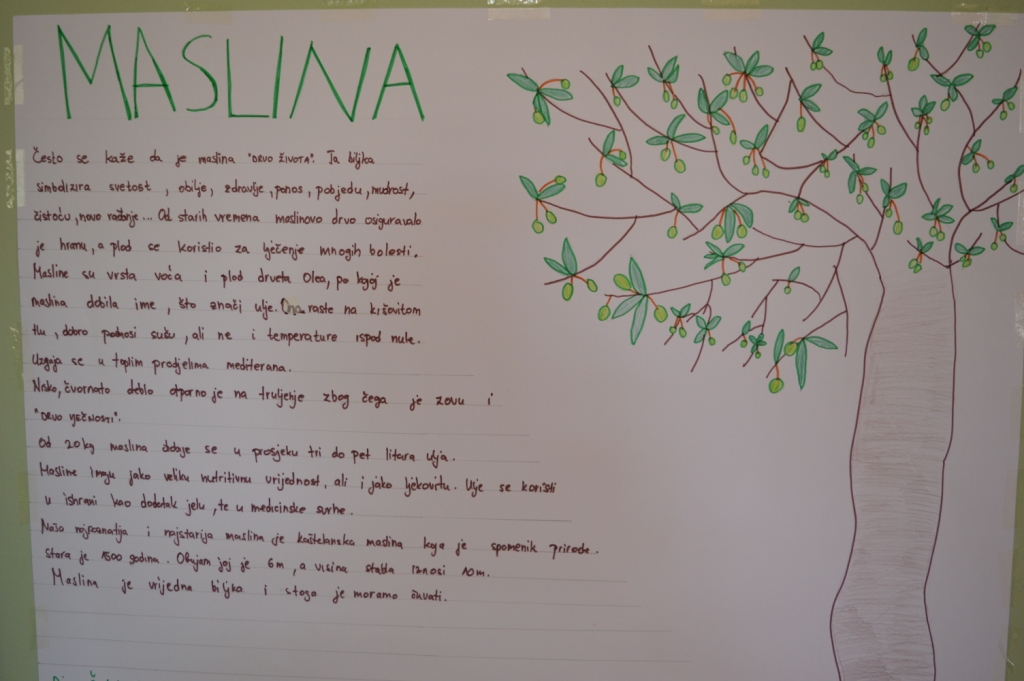 MASLINA
Često se kaže da je maslina "DRVO ŽIVOTA". Ta biljka
simbolizira svetost, obilje, zdravlje, ponos, pobjedu, mudrost,
čistoću, novo rađanje... Od starih vremena maslinovo drvo osiguravalo
je hranu, a plod se koristio za lječenje mnogih bolesti.
Masline su vrsta voća i plod drveta Olea, po kojoj je
maslina dobila ime, što znači ulje. Ona raste na kišovitom
tlu, dobro podnosi sušu, ali ne i temperature ispod nule.
Uzgaja se u toplim predjelima mediterana.
Nisko, čvornato deblo otporno je na truljenje zbog čega je zovu i
"DRVO VJEČNOSTI".
Od 20 kg maslina dobije se u prosjeku tri do pet litara ulja.
Masline imaju jako veliku nutritivnu vrijednost, ali i jako ljekovitu. Ulje se koristi
u ishrani kao dodatak jelu, te u medicinske svrhe.
Naša najpoznatija i najstarija maslina je kaštelanska maslina koja je spomenik prirode.
Stara je 1500 godina. Obujam joj je 6m, a visina stabla iznosi 10m.
Maslina je vrijedna biljka i stoga je moramo čuvati.